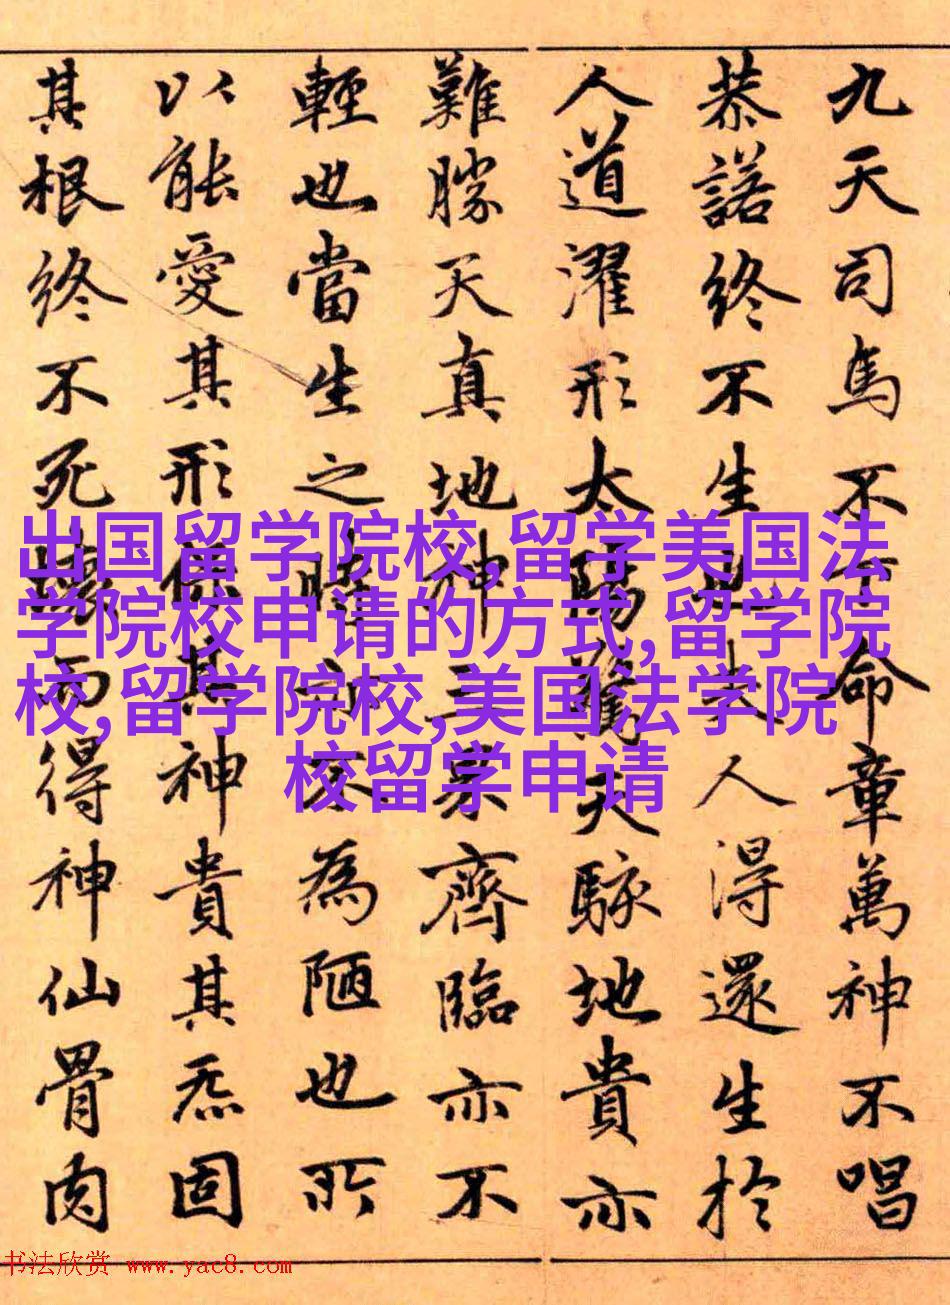 九天司馬不下命章萬神不唱
恭諾終不生也夫人得還生於
人道濯形太陽驚天駭地貴亦
難勝天真地神三界齊臨亦不
輕也當生之時亦不為陋也所
以能愛其形保其神貴其炁固
其根終不死壞而得神仙骨肉
出国留学院校,留学美国法
学院校申请的方式,留学院
校,留学院校,美国法学院
校留学申请
书法欣赏 www.yac8.com